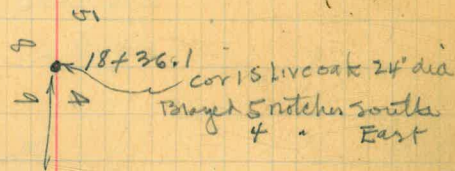 18+36.1
cor is Live oak 24" dia
5 notches South
4 " East